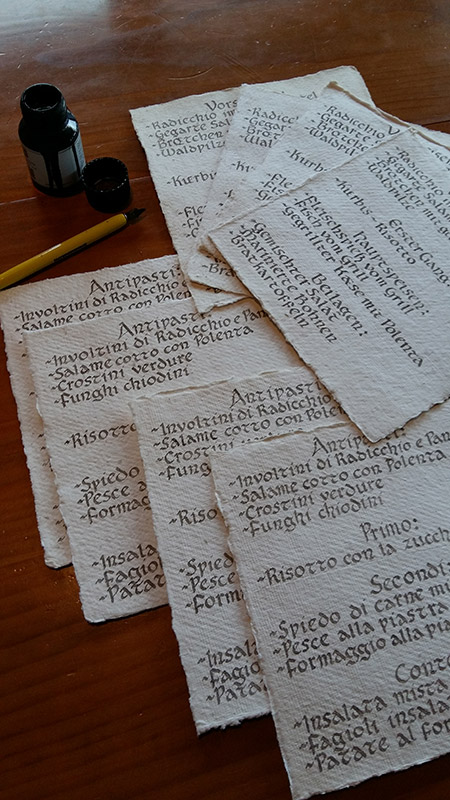 -Radicchio im
-Gegarte
-Brötchen
-Kürbis
-Radicchio
-Gegarte
-Radicchio im
-Gegarte
-Brötchen mit
-Waldpilze
Erster Gang
-Kürbis-Risotto
Hauptspeisen:
-Fleischspieß vom Grill
-Fisch vom Grill
-Gegrillter Käse mit Polenta
Beilagen:
-Gemischter Salat
-Marinierte Bohnen
-Bratkartoffeln
Antipasti:
-Involtini di Radicchio
-Salame cotto con
Antipasti
-Involtini di Radicchio e Pan
-Salame cotto con Polenta
-Crostini verdure
-Funghi chiodini
-Risotto
-Spiedo
-Pesce al
-Formag
-Insala
-Fagiol
-Patate
Antipasti
-Involtini di Radicchio
-Salame cotto con Polen
-Crostini
-Fung
-Spied
-Pesce
-Form
-Insal
-Fagio
-Pata
Antipasti:
-Involtini di Radicchio e Pan
-Salame cotto con Polenta
-Crostini verdure
-Funghi chiodini
Primo:
-Risotto con la zucch
Secondi:
-Spiedo di carne mi
-Pesce alla piastra
-Formaggio alla pia
Conto
-Insalata mista
-Fagioli insala
-Patate al for